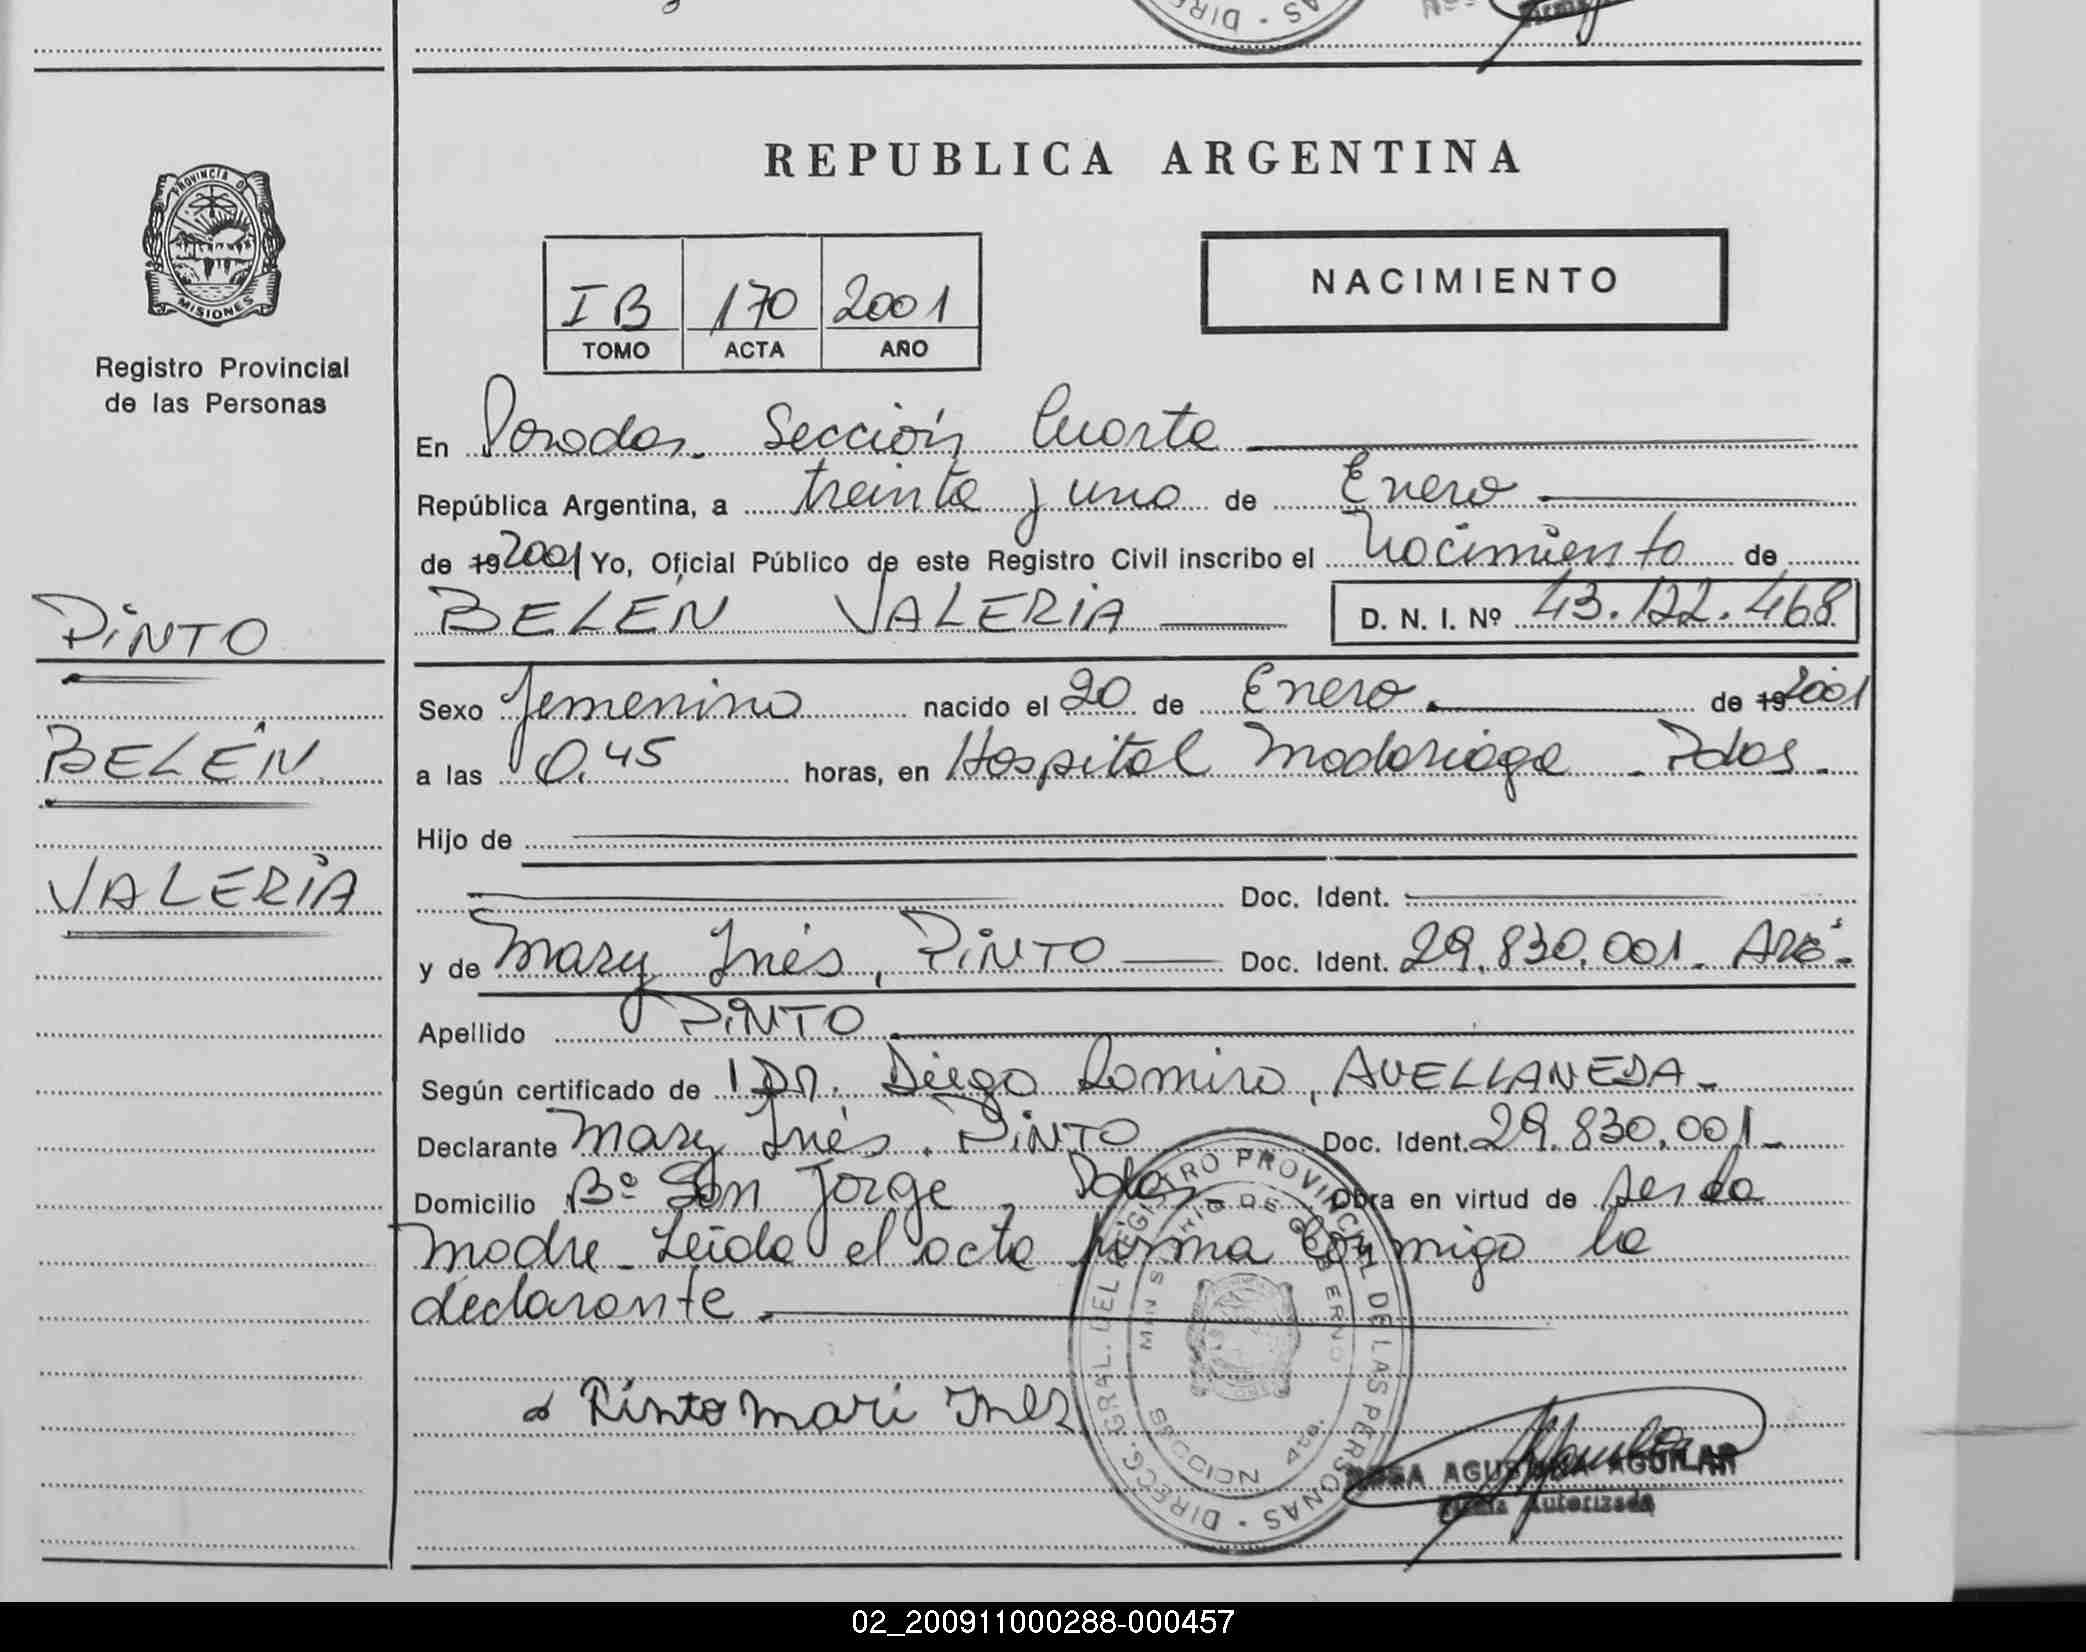 REPUBLICA ARGENTINA
PROVINCIA DE
MISIONES
Registro Provincial
de las Personas
I B 170 2001
TOMO ACTA AÑO
NACIMIENTO
En Posadas. Sección Cuarta
República Argentina, a treinta y uno de Enero
de 19 2001 Yo, Oficial Público de este Registro Civil inscribo el Nacimiento de
BELÉN VALERIA D. N. I. Nº 43.122.468
PINTO
BELÉN
VALERIA
Sexo femenino nacido el 20 de Enero. de 19 2001
a las 0.45 horas, en Hospital Madariaga - Pdas.
Hijo de
Doc. Ident.
y de Mary Inés, PINTO Doc. Ident. 29.830.001.
Apellido PINTO
Según certificado de Dr. Diego Ramiro, AVELLANEDA-
Declarante Mary Inés. PINTO Doc. Ident. 29.830.001-
Domicilio Bº San Jorge - Pdas - Obra en virtud de ser la
madre - Leída el acta firma conmigo la
declarante.
Pinto mari Ines
DIRECC. GRAL. DEL REGISTRO PROVINCIAL DE LAS PERSONAS
MINISTERIO DE GOBIERNO
SECCION 4ta.
ROSA AGUSTINA AGUILAR
Firma Autorizada
02_200911000288-000457